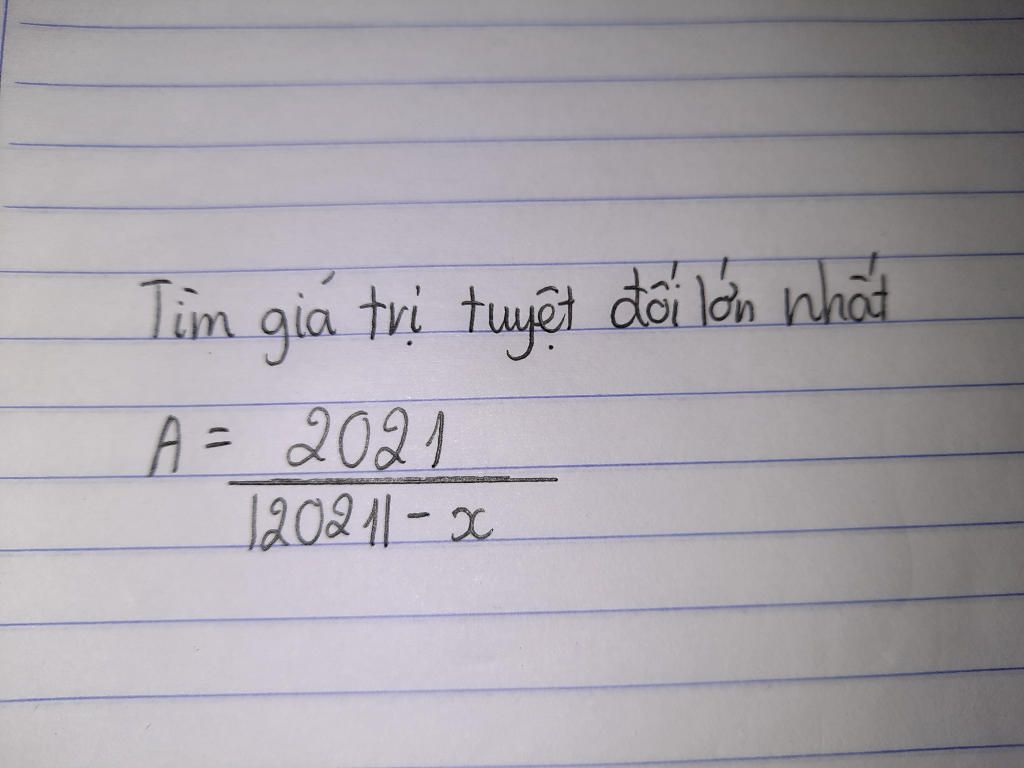 Tìm giá trị tuyệt đối lớn nhất
A = 2021
|2021| - x